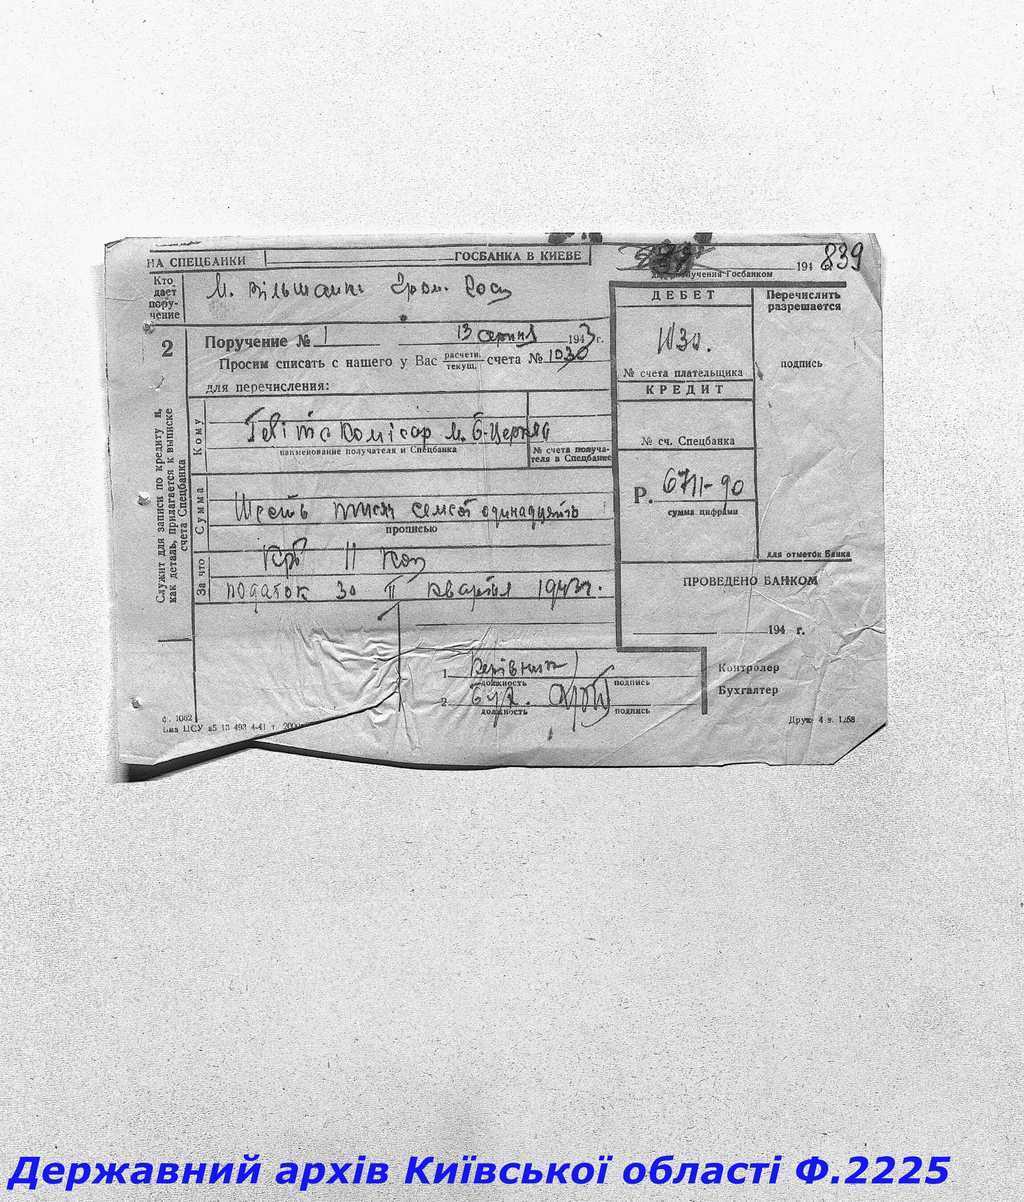 НА СПЕЦБАНКИ ГОСБАНКА В КИЕВЕ
194 г. 839
для поручения Госбанком
Кто дает поручение
М. Вільшанк. Гром. Госп
2
Поручение № 1 13 серпня 1943 г.
Просим списать с нашего у Вас расчетн. текущ. счета № 1030
для перечисления:
Кому
Гебітскомісар м. Б-Церква
наименование получателя и Спецбанка
№ счета получателя в Спецбанке
Сумма
Шесть тисяч семсот одинадцять
прописью
крб 11 коп
За что
податок за II квартал 1943 г.
Служит для записи по кредиту и, как деталь, прилагается к выписке счета Спецбанка
1 Керівник
должность подпись
2 Бух.
должность подпись
ф. 1062
ДЕБЕТ
1030.
№ счета плательщика
КРЕДИТ
№ сч. Спецбанка
Р. 6711-90
сумма цифрами
Перечислить разрешается
подпись
для отметок Банка
ПРОВЕДЕНО БАНКОМ
194 г.
Контролер
Бухгалтер
Державний архів Київської області Ф.2225